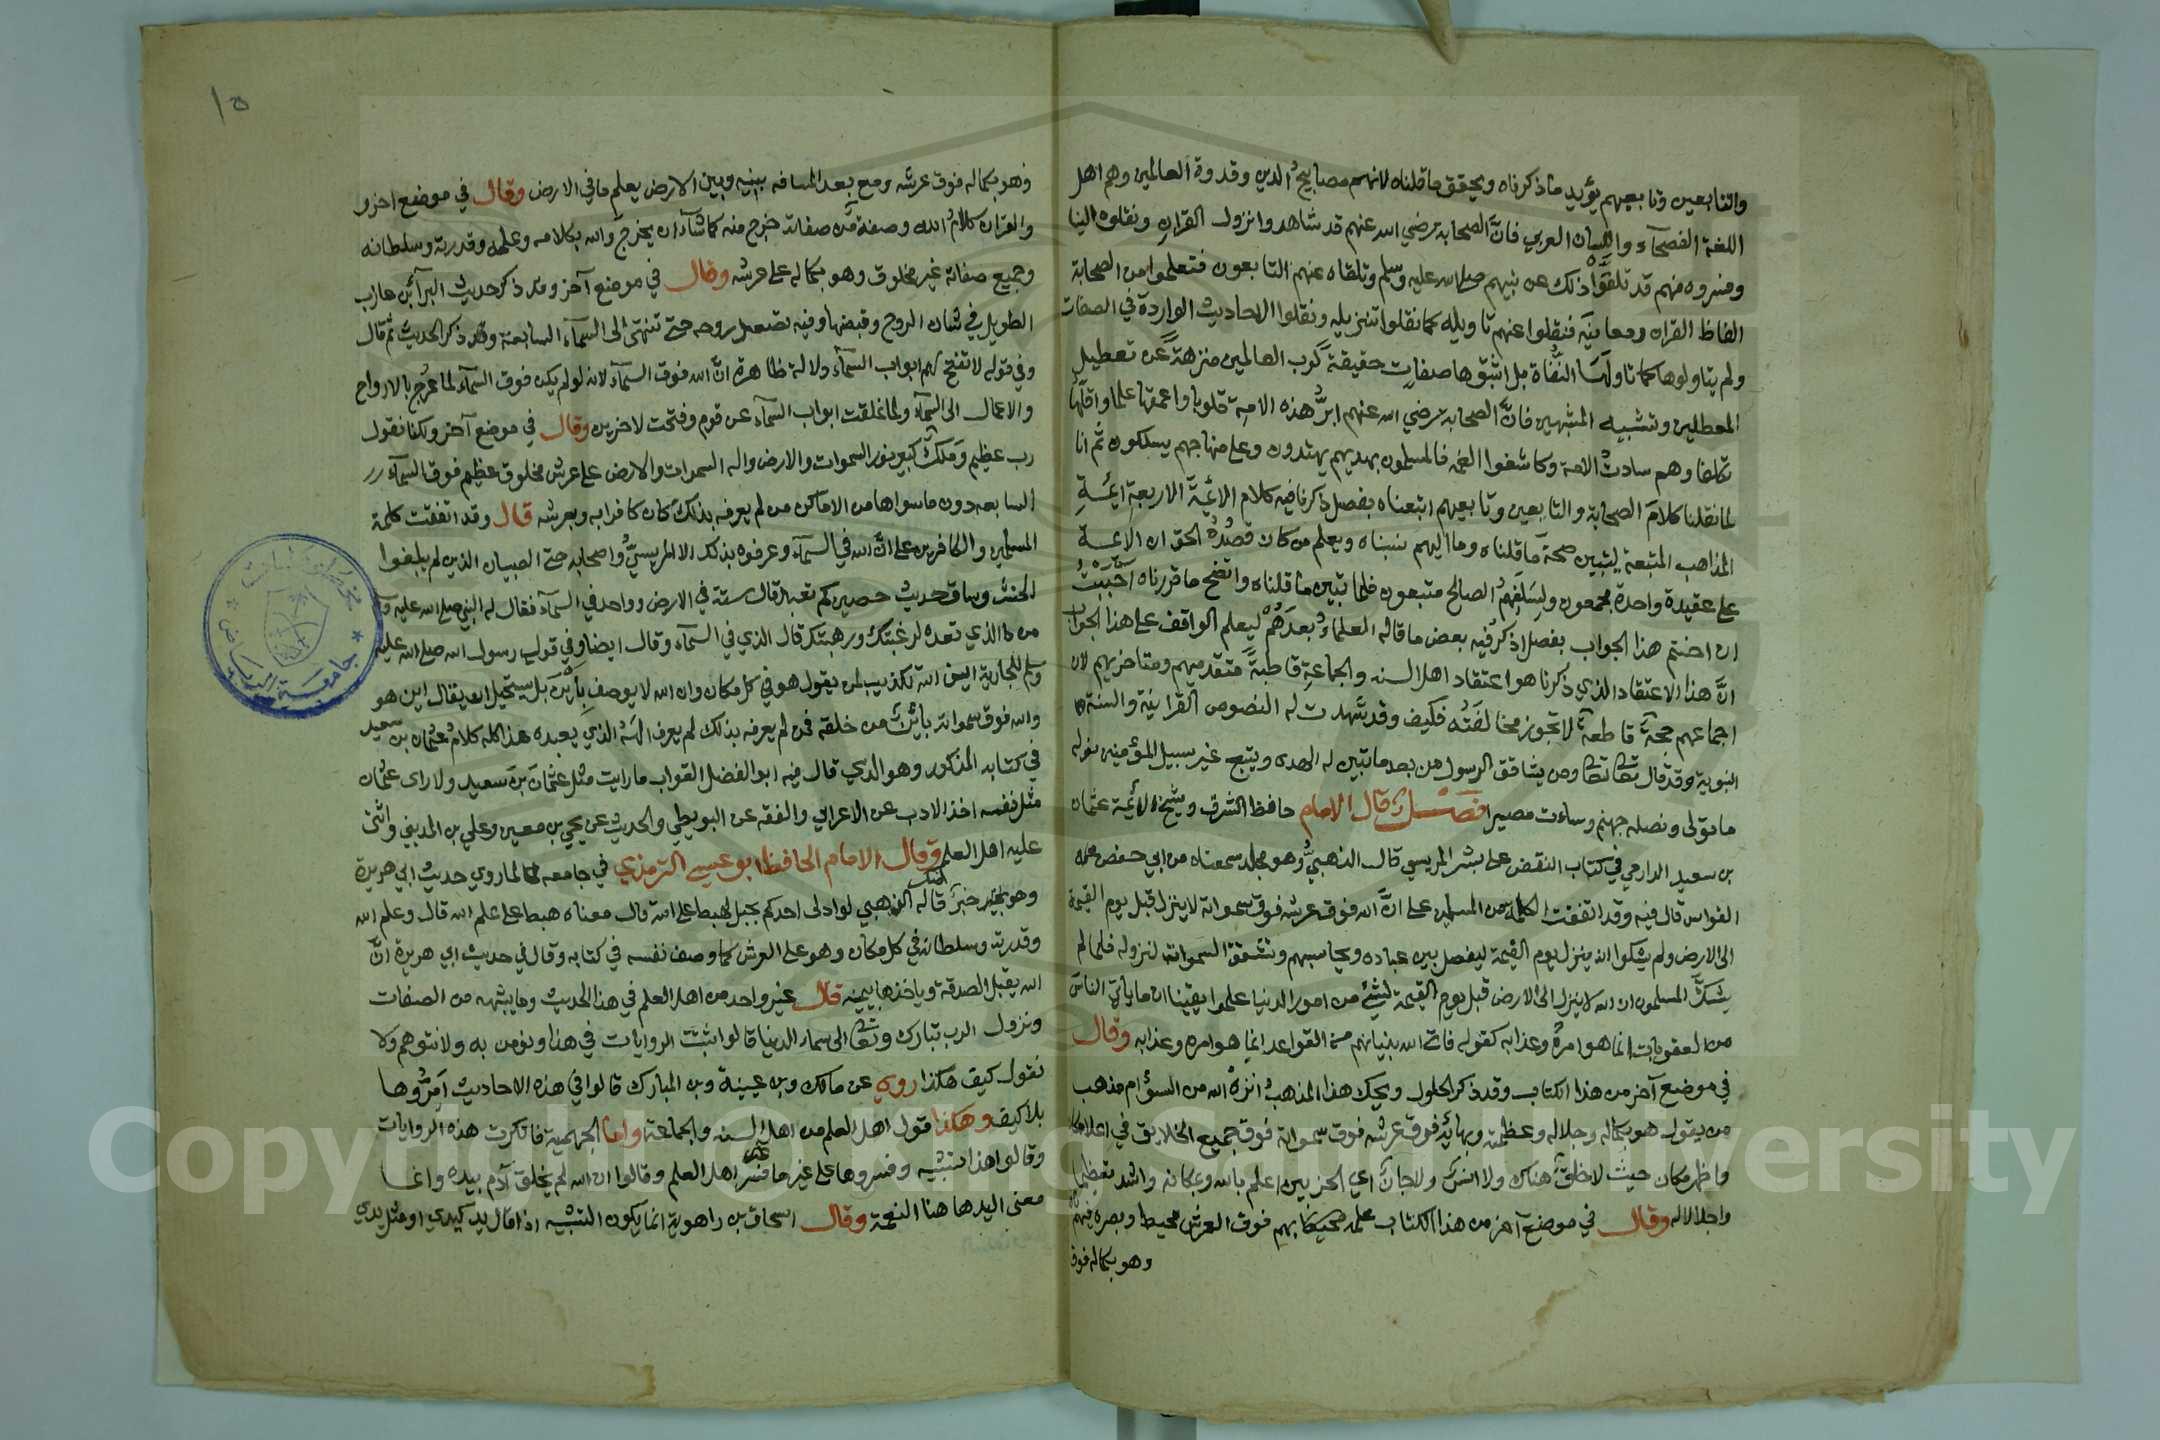 والتابعين وتابعيهم يؤيد ما ذكرناه ويحقق ما قلناه لانهم مصابيح الدين وقدوة العالمين وهم اهل
اللغة الفصحاء واللسان العربي فانّ الصحابة رضي الله عنهم قد شاهدوا نزول القران ونقلوه الينا
وفسروه فهم قد تلقّوا ذلك عن نبيهم صلى الله عليه وسلم وتلقاه عنهم التابعون فتعلموا من الصحابة
الفاظ القران ومعانيه فنقلوا عنهم تاويله كما نقلوا تنزيله ونقلوا الاحاديث الواردة في الصفات
ولم يتاولوها كما تاولها النفاة بل اثبتوها صفات حقيقة لرب العالمين منزهة عن تعطيل
المعطلين وتشبيه المشبهين فانّ الصحابة رضي الله عنهم ابرُّ هذه الامة قلوبا واعمقها علما واقلّها
تكلفا وهم سادت الامة وكاشفوا الغمه فالمسلمون بهديهم يهتدون وعلى منهاجهم يسلكون ثم انا
لما نقلنا كلام الصحابة والتابعين وتابعيهم اتبعناه بفصل ذكرنا فيه كلام الائمة الاربعة ايمة
المذاهب المتبعة ليتبين صحة ما قلناه وما اليهم نسبناه ويعلم من كان قصده الحق ان الائمة
على عقيدة واحدة مجمعون ولسلفهم الصالح متبعون فلما تبين ما قلناه واتضح ما قررناه احببت
ان اختم هذا الجواب بفصل اذكر فيه بعض ما قاله العلماء بعدهم ليعلم الواقف على هذا الجواب
انّ هذا الاعتقاد الذي ذكرنا هو اعتقاد اهل السنه والجماعة قاطبة متقدميهم ومتاخريهم لان
اجماعهم حجة قاطعة لا تجوز مخالفته فكيف وقد شهدت له النصوص القرانية والسنة
النبوية وقد قال تعالى ومن يشاقق الرسول من بعد ما تبين له الهدى ويتبع غير سبيل المؤمنين نوله
ما تولى ونصله جهنم وساءت مصيرا فصل قال الامام حافظ الشرق وشيخ الائمة عثمان
بن سعيد الدارمي في كتاب النقض على بشر المريسي قال الذهبيُّ وهو مجلد سمعناه من ابي حفص
القواس قال فيه وقد اتفقت الكلمة من المسلمين على انّ الله فوق عرشه فوق سمواته لا ينزل قبل يوم القيمة
الى الارض ولم يشكوا انه ينزل يوم القيمة ليفصل بين عباده ويحاسبهم وتشقق السموات لنزوله فلما لم
يشكّ المسلمون ان الله لا ينزل الى الارض قبل يوم القيمة لشئ من امور الدنيا علموا يقينا ان ما ياتي الناس
من العقوبات انما هو امره وعذابه كقوله فاتى الله بنيانهم من القواعد انما هو امره وعذابه وقال
في موضع آخر من هذا الكتاب وقد ذكر الحلول ويحك هذا المذهب انزه الله من السؤ ام مذهب
من يقول هو بكماله وجلاله وعظمته وبهائه فوق عرشه فوق سمواته فوق جميع الخلايق في اعلا مكان
واظهر مكان حيث لا خلق هناك ولا انس ولا جان اي الحزبين اعلم بالله وبمكانه واشد تعظيما
واجلالا له وقال في موضع آخر من هذا الكتاب علمه محيط بهم فوق العرش محيط وبصره فيهم نافذ
وهو بكماله فوق
١٥
وهو بكماله فوق عرشه ومع بعد المسافه بينه وبين الارض يعلم ما في الارض وقال في موضع اخر
والقران كلام الله وصفة من صفاته خرج منه كما شآء ان يخرج والله بكلامه وعلمه وقدرته وسلطانه
وجميع صفاته غير مخلوق وهو بكماله على عرشه وقال في موضع آخر وقد ذكر حديث البرآء بن عازب
الطويل في شان الروح وقبضها وفيه تصعد روحه حتى تنتهي الى السمآء السابعة وقد ذكر الحديث ثم قال
وفي قوله لا تفتح لهم ابواب السمآء دلالة ظاهرة انّ الله فوق السمآء لانه لو لم يكن فوق السمآء لما عرج بالارواح
والاعمال الى السمآء ولما غلقت ابواب السمآء عن قوم وفتحت لاخرين وقال في موضع آخر ولكنا نقول
رب عظيم وملك كبير نور السموات والارض واله السموات والارض على عرش مخلوق عظيم فوق السمآء
السابعه دون ما سواها من الاماكن من لم يعرفه بذلك كان كافرا به وبعرشه قال وقد اتفقت كلمة
المسلمين والكافرين على انّ الله في السمآء وعرفوه بذلك الا المريسيّ واصحابه حتى الصبيان الذين لم يبلغوا
الحنث وساق حديث حصين كم تعبد قال ستة في الارض وواحد في السمآء فقال له النبي صلى الله عليه وسلم
من الذي تعده لرغبتك ورهبتك قال الذي في السمآء وقال ايضا وفي قول رسول الله صلى الله عليه
وسلم للجارية اين الله تكذيب لمن يقول هو في كل مكان وان الله لا يوصف باين بل يستحيل ان يقال اين هو
والله فوق سمواته بائن من خلقه فمن لم يعرفه بذلك لم يعرف الهه الذي يعبده هذا كله كلام عثمان بن سعيد
في كتابه المذكور وهو الذي قال فيه ابو الفضل القواب ما رايت مثل عثمان بن سعيد ولا راى عثمان
مثل نفسه اخذ الادب عن الاعرابي والفقه عن البويطي والحديث عن يحيي بن معين وعلي بن المديني واثنى
عليه اهل العلم وقال الامام الحافظ ابو عيسى الترمذي في جامعه لما روي حديث ابي هريرة
وهو خبر قاله الذهبي لو ادلى احدكم بحبل لهبط على الله قال معناه هبط على علم الله قال وعلم الله
وقدرته وسلطانه في كل مكان وهو على العرش كما وصف نفسه في كتابه وقال في حديث ابي هريرة انّ
الله يقبل الصدقة وياخذها بيمينه قال غير واحد من اهل العلم في هذا الحديث وما يشبهه من الصفات
ونزول الرب تبارك وتعالى الى سماء الدنيا قالوا ثبتت الروايات في هذا ونؤمن به ولا نتوهم ولا
نقول كيف هكذا روي عن مالك وبن عيينة وبن المبارك قالوا في هذه الاحاديث امرّوها
بلا كيف وهكذا قول اهل العلم من اهل السنه والجماعة واما الجهمية فانكرت هذه الروايات
وقالوا هذا تشبيه وفسروها على غير ما فسر اهل العلم وقالوا ان الله لم يخلق آدم بيده وانما
معنى اليد هاهنا النعمة وقال اسحاق بن راهوية انما يكون التشبيه اذا قال يد كيدي او مثل يدي
جامعة الرياض
Copyright © King Saud University